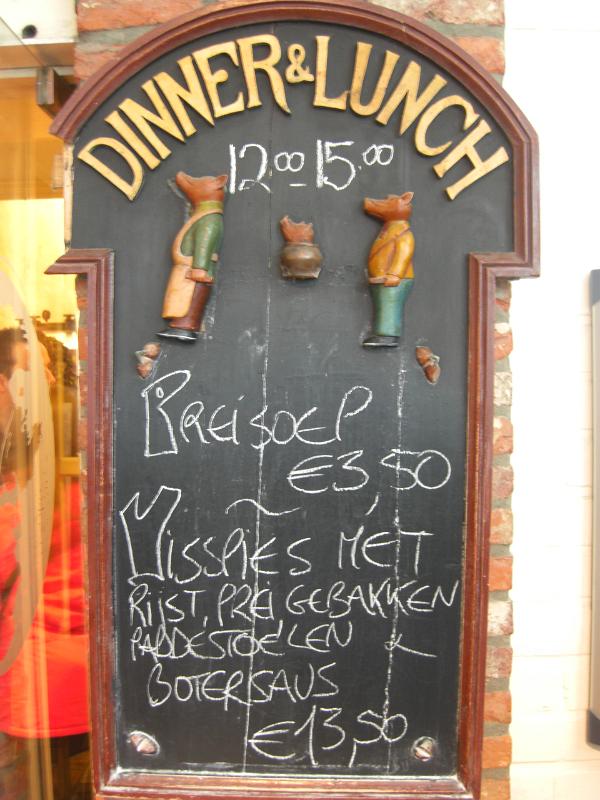 DINNER & LUNCH
12.00-15.00
PREISOEP
€3,50
~
VISSPIES MET
RIJST, PREI GEBAKKEN
PADDESTOELEN &
BOTERSAUS
€13,50